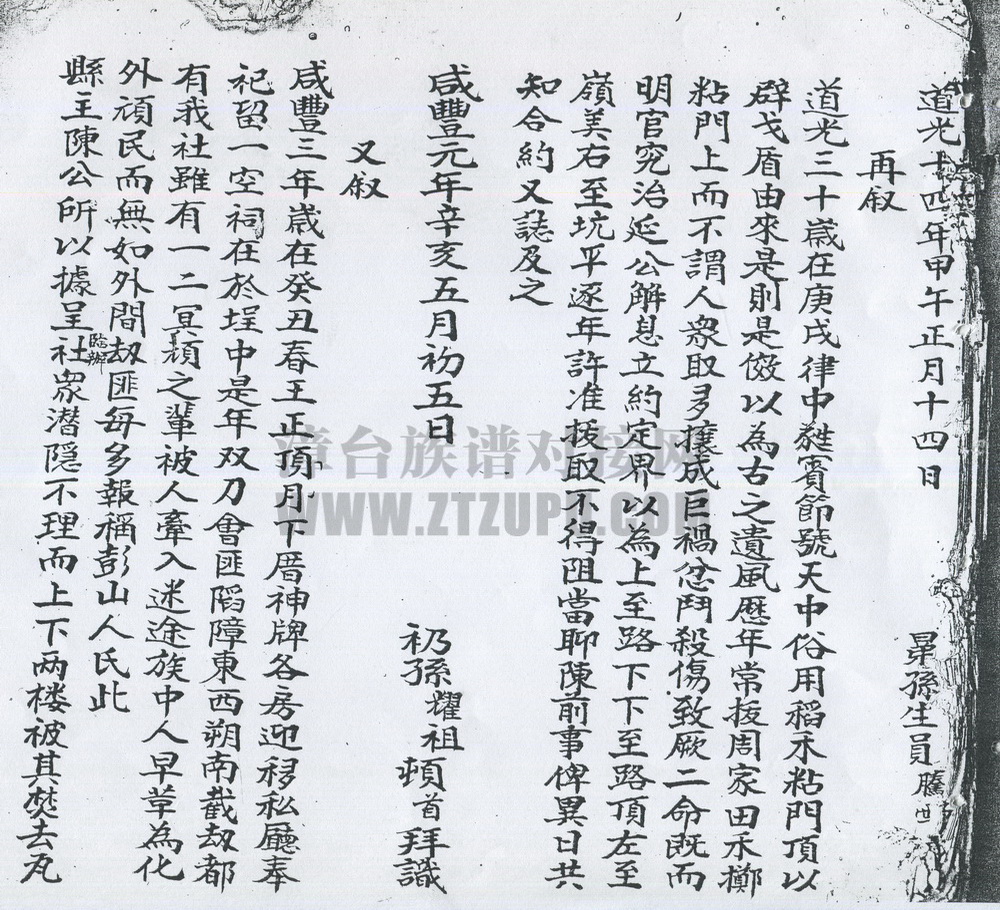 道光十四年甲午正月十四日　晜孫生員騰
再叙
道光三十歲在庚戌律中蕤賓節號天中俗用稻禾粘門頂以
辟戈盾由來是則是傚以為古之遺風歷年常扳周家田禾擲
粘門上而不謂人衆取多攘成巨禍忿鬥殺傷致厥二命既而
明官究治延公觧息立約定界以為上至路下下至路頂左至
嶺美右至坑平逐年許准援取不得阻當聊陳前事俾異日共
知合約又誌及之
咸豐元年辛亥五月初五日　礽孫耀祖頓首拜識
又叙
咸豐三年歲在癸丑春王正頂月下厝神牌各房迎移私廳奉
祀留一空祠在於埕中是年双刀會匪陷障東西朔南截刼都
有我社雖有一二冥頑之輩被人牽入迷途族中人早草為化
外頑民而無如外間刼匪每多報稱彭山人氏此
縣王陳公所以據呈臨辦社衆潛隱不理而上下兩楼被其焚去瓦
漳台族谱对接网
WWW.ZTZUPU.COM